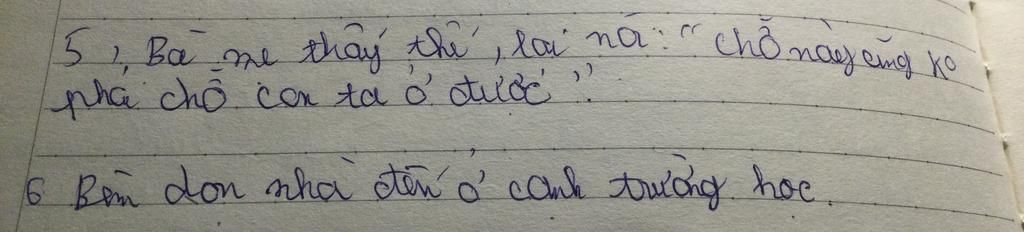 5, Bà mẹ thấy thế, lại nói: "chỗ này cũng ko
phải chỗ con ta ở được".
6 Bèn dọn nhà đến ở cạnh trường học.